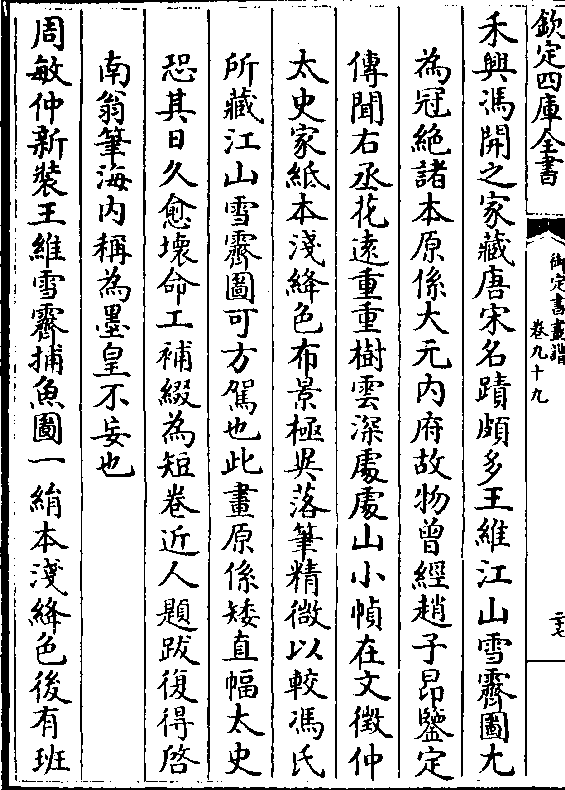 欽定四庫全書
御定書畫譜
卷九十九
二七
禾興馮開之家藏唐宋名蹟頗多王維江山雪霽圖尤
為冠絶諸本原係大元内府故物曾經趙子昂鑒定
傳聞右丞花遠重重樹雲深處處山小幀在文徵仲
太史家紙本淺絳色布景極異落筆精微以較馮氏
所藏江山雪霽圖可方駕也此畫原係矮直幅太史
恐其日久愈壞命工補綴為短卷近人題跋復得啓
南翁筆海内稱為墨皇不妄也
周敏仲新裝王維雪霽捕魚圖一絹本淺絳色後有班